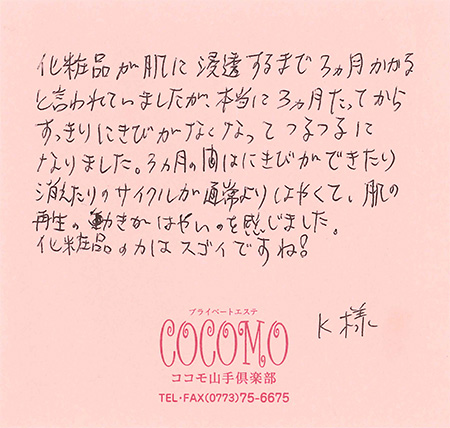 化粧品が肌に浸透するまで3ヵ月かかる
と言われていましたが、本当に3ヵ月たってから
すっきりにきびがなくなってつるつるに
なりました。3ヵ月の間はにきびができたり
消えたりのサイクルが通常よりはやくて、肌の
再生の動きがはやいのを感じました。
化粧品の力はスゴイですね!
K様
プライベートエステ
COCOMO
ココモ山手倶楽部
TEL・FAX(0773)75-6675